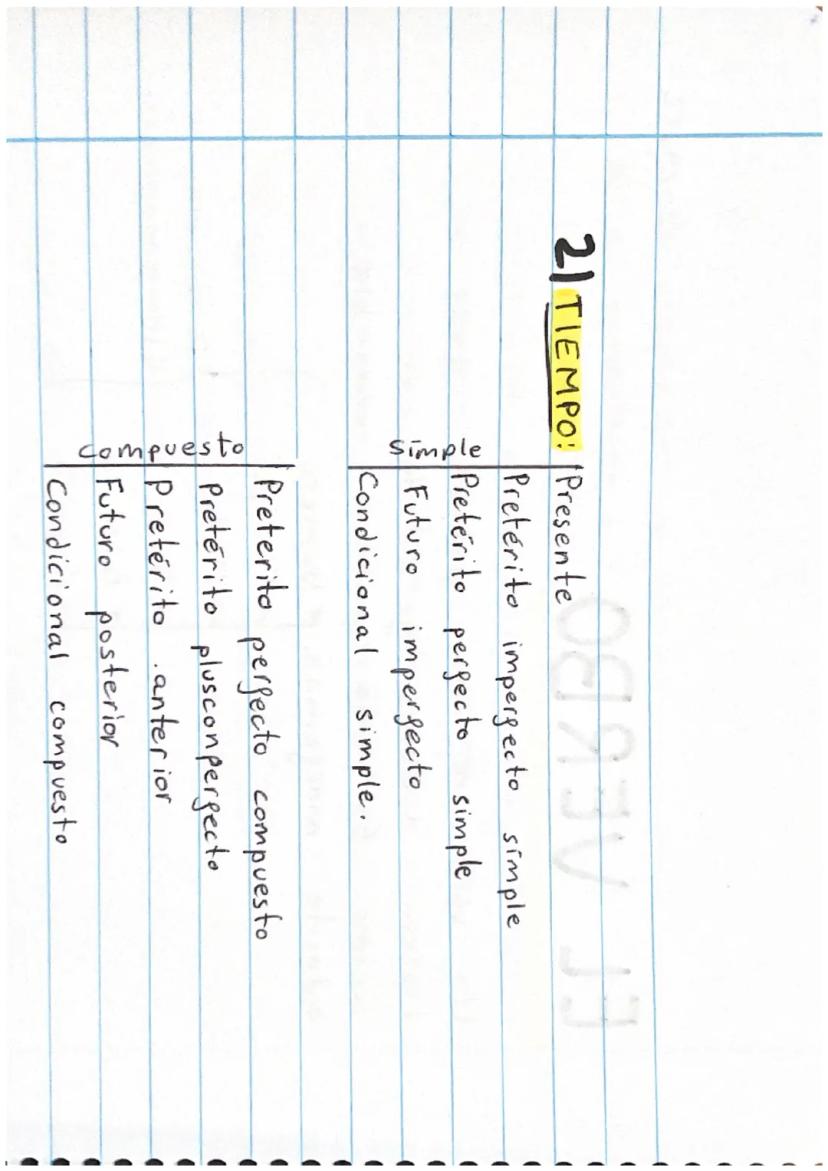 2) TIEMPO:
simple
Presente
Pretérito imperfecto simple
Pretérito perfecto simple
Futuro imperfecto
Condicional simple.
compuesto
Preterito perfecto compuesto
Pretérito plusconperfecto
Pretérito anterior
Futuro posterior
Condicional compuesto
EL VERBO